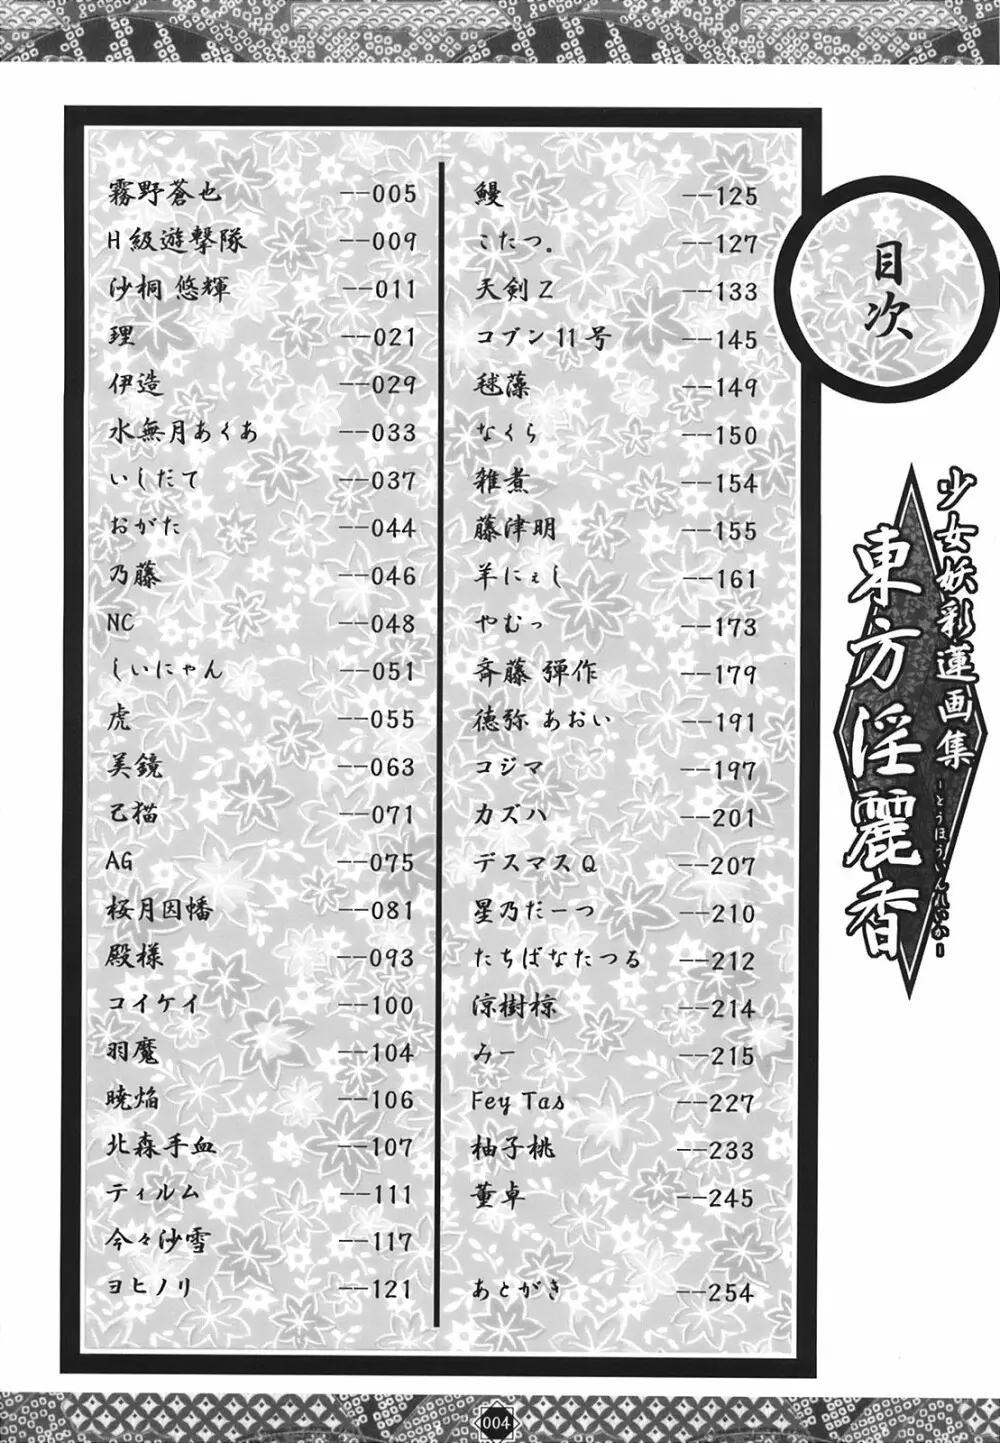 目次
少女妖彩蓮画集
東方淫麗香
－とうほういんれいか－
霧野蒼也 --005
H級遊撃隊 --009
沙桐 悠輝 --011
理 --021
伊造 --029
水無月あくあ --033
いしだて --037
おがた --044
乃藤 --046
NC --048
しいにゃん --051
虎 --055
美鏡 --063
己猫 --071
AG --075
桜月因幡 --081
殿様 --093
コイケイ --100
羽魔 --104
暁焔 --106
北森手血 --107
ティルム --111
今々沙雪 --117
ヨヒノリ --121
鰻 --125
こたつ。 --127
天剣Z --133
コブン11号 --145
毬藻 --149
なくら --150
雑煮 --154
藤津明 --155
羊にぇし --161
やむっ --173
斉藤 弾作 --179
徳弥 あおい --191
コジマ --197
カズハ --201
デスマスQ --207
星乃だーつ --210
たちばなたつる --212
涼樹椋 --214
みー --215
Fey Tas --227
柚子桃 --233
董卓 --245
あとがき --254
004